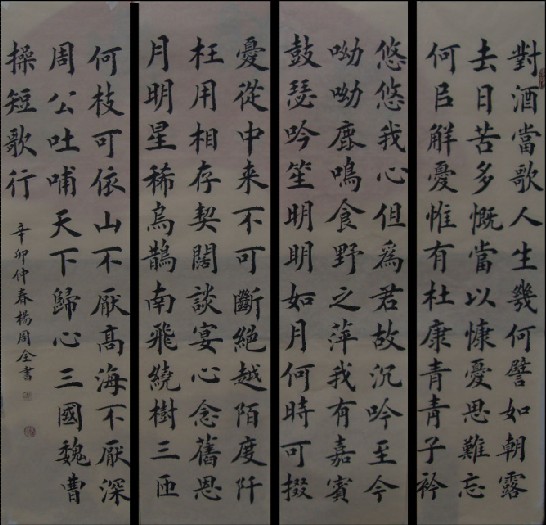 對酒當歌人生幾何譬如朝露
去日苦多慨當以慷憂思難忘
何㠯解憂惟有杜康青青子衿
悠悠我心但為君故沉吟至今
呦呦鹿鳴食野之萍我有嘉賓
鼓瑟吟笙明明如月何時可掇
憂從中来不可斷絕越陌度阡
枉用相存契闊談宴心念舊恩
月明星稀烏鵲南飛繞樹三匝
何枝可依山不厭高海不厭深
周公吐哺天下歸心三國魏曹
操短歌行
辛卯仲春楊周全書